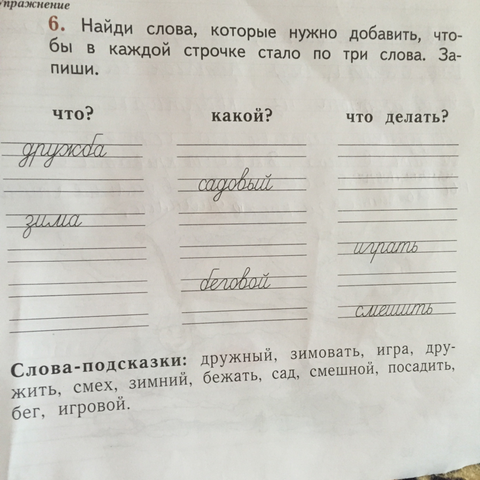 упражнение
6. Найди слова, которые нужно добавить, что-
бы в каждой строчке стало по три слова. За-
пиши.
что? какой? что делать?
дружба
садовый
зима
играть
беговой
смешить
Слова-подсказки: дружный, зимовать, игра, дру-
жить, смех, зимний, бежать, сад, смешной, посадить,
бег, игровой.